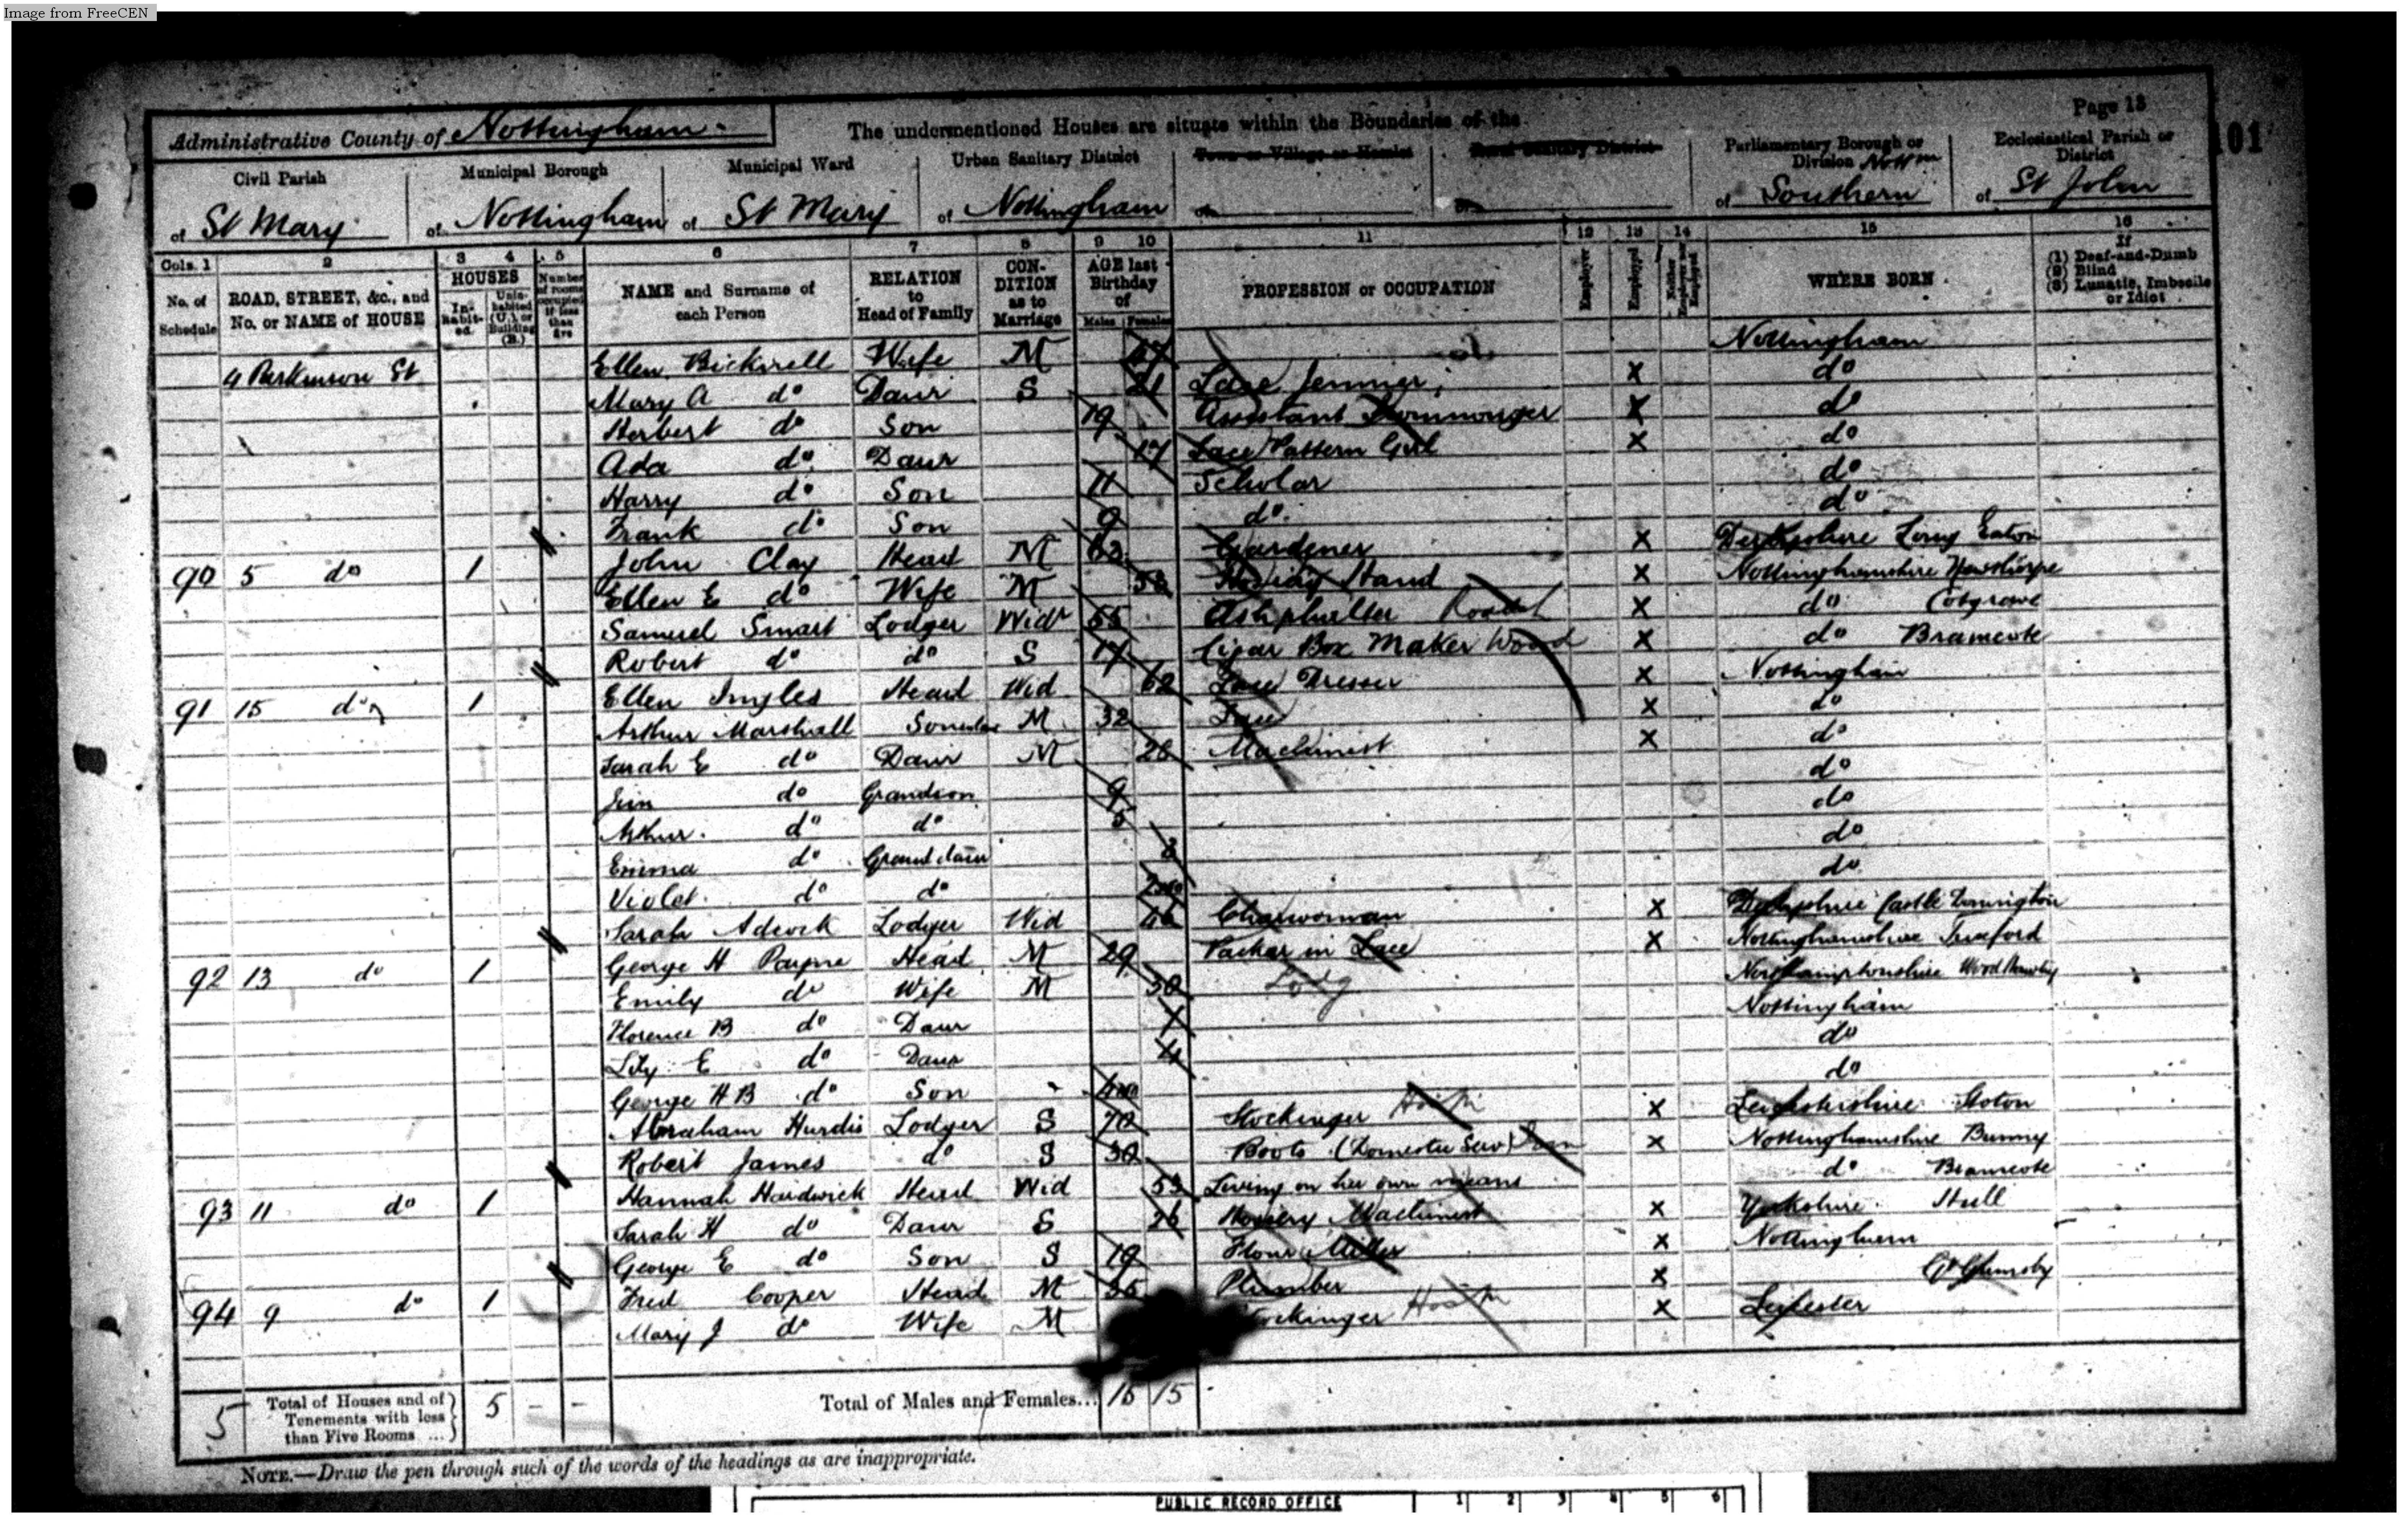 Image from FreeCEN
Page 13
101
Administrative County of Nottingham
The undermentioned Houses are situate within the Boundaries of the
Civil Parish
of St Mary
Municipal Borough
of Nottingham
Municipal Ward
of St Mary
Urban Sanitary District
of Nottingham
Town or Village or Hamlet
of
Rural Sanitary District
of
Parliamentary Borough or Division Nottm
of Southern
Ecclesiastical Parish or District
of St John
Cols. 1 2 3 4 5 6 7 8 9 10 11 12 13 14 15 16
No. of Schedule
ROAD, STREET, &c., and No. or NAME of HOUSE
HOUSES
In-habit-ed.
Unin-habited (U.), or Building (B.)
Number of rooms occupied if less than five
NAME and Surname of each Person
RELATION to Head of Family
CON-DITION as to Marriage
AGE last Birthday of
Males Females
PROFESSION or OCCUPATION
Employer
Employed
Neither Employer nor Employed
WHERE BORN
If (1) Deaf-and-Dumb (2) Blind (3) Lunatic, Imbecile or Idiot
4 Parkinson St Ellen Bicknell Wife M 47 Nottingham
Mary A do Daur S 21 Lace Jennier X do
Herbert do Son 19 Assistant Ironmonger X do
Ada do Daur 17 Lace Pattern Girl X do
Harry do Son 11 Scholar do
Frank do Son 9 do do
90 5 do 1 John Clay Head M 62 Gardener X Derbyshire Long Eaton
Ellen E do Wife M 53 Hosiay Hand X Nottinghamshire Newthorpe
Samuel Smart Lodger Widr 55 Ashphalter Road X do Cotgrave
Robert do do S 17 Cigar Box Maker Wood X do Bramcote
91 15 do 1 Ellen Ingles Head Wid 62 Lace Dresser X Nottingham
Arthur Marshall Soninlaw M 32 Lace X do
Sarah E do Daur M 28 Machinist X do
Jim do Grandson 9 do
Arthur do do 5 do
Emma do Grand daur 3 do
Violet do do do
Sarah Adcock Lodger Wid 46 Charwoman X Castle Donnington
92 13 do 1 George H Payne Head M 29 Packer in Lace X Nottinghamshire Tuxford
Emily do Wife M 30 Northamptonshire
Florence B do Daur Nottingham
Lily E do Daur 4 do
George H B do Son do
Abraham Hurdis Lodger S 70 Stockinger X Leicestershire Hoton
Robert James do S 30 Boots (Domestic Serv) X Nottinghamshire Bunny
93 11 do 1 Hannah Hardwick Head Wid 53 Living on her own means do Bramcote
Sarah H do Daur S 26 Hosiery Machinist X Yorkshire Hull
George E do Son S 19 Flour Miller X Nottingham
94 9 do 1 Fred Cooper Head M Plumber X Gt Grimsby
Mary J do Wife M X Leicester
5 Total of Houses and of Tenements with less than Five Rooms ... 5 - -
Total of Males and Females... 16 15
NOTE.—Draw the pen through such of the words of the headings as are inappropriate.
PUBLIC RECORD OFFICE 1 2 3 4 5 6